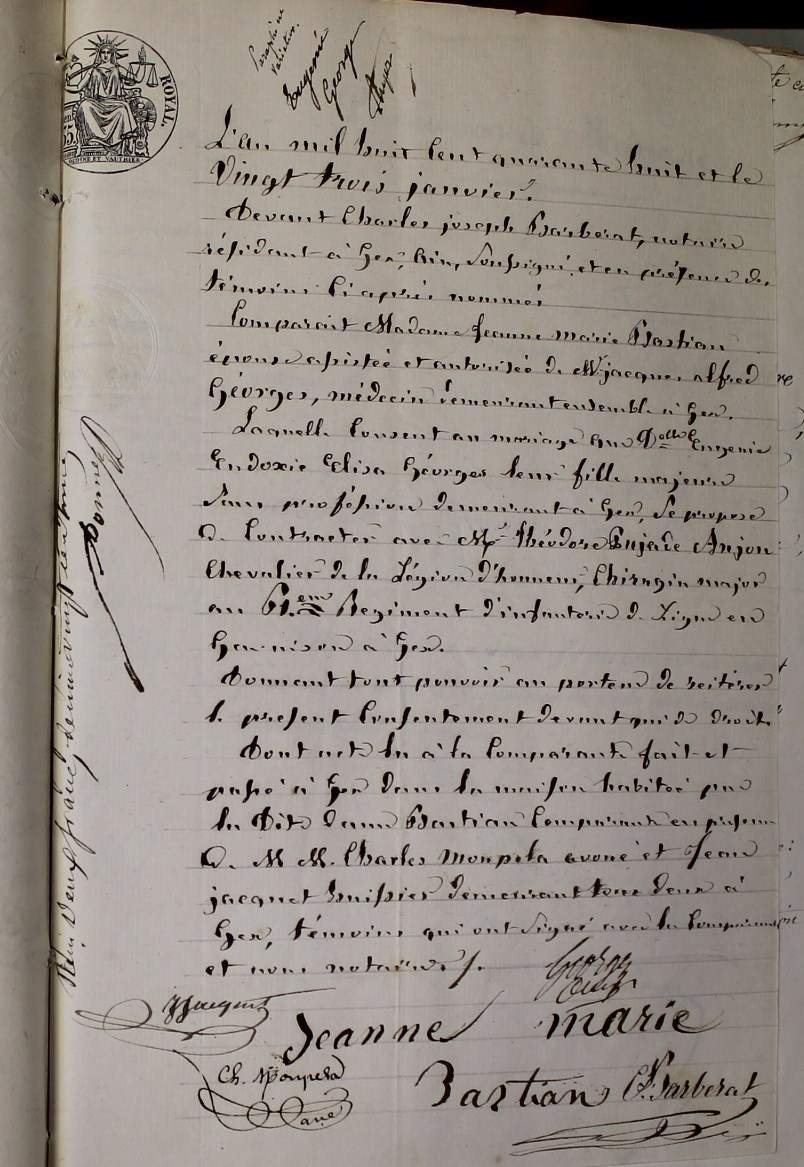 ROYAL.
Eugenie
George
L'an mil huit cent quarante huit et le
Vingt trois janvier.
Devant Charles joseph Barberat, notaire
résidant à Gex, Ain, soussigné, et en présence des
témoins ci après nommés
Comparait Madame Jeanne marie Bastian
épouse assistée et autorisée de Mr jacques alfred
Géorges, médecin demeurant ensemble à Gex.
Laquelle consent au mariage que Delle Eugenie
Eudoxie Elisa Géorges leur fille majeure
sans proféssion demeurant à Gex, se propose
de Contracter avec Mr théodore Pujade Anjou
Chevalier de la Légion d'honneur, Chirugin major
au Regiment d'infanterie de Ligne en
Garnison à Gex.
Donnant tout pouvoir au porteur de reitérer
le present Consentement devant qui de droit
Dont acte lu à la Comparante fait et
passé à Gex dans la maison habitée par
la Dite dame Bastian Comparante en présence
de M M. Charles monpela avoué et Jean
jacquet huissier demeurant tous deux à
Gex, témoins qui ont signé avec la Comparante
et nous notaire /.
George
JJacquet
Jeanne marie
Ch. Monpela
Bastian CJBarberat